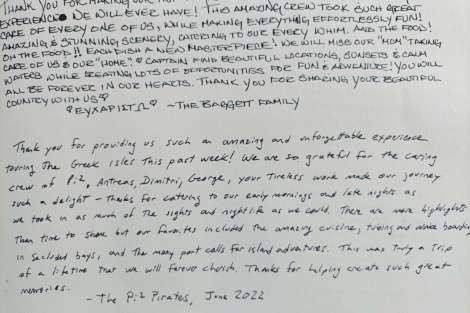 THANK YOU FOR MAKING OUR
EXPERIENCE WE WILL EVER HAVE! THIS AMAZING CREW TOOK SUCH GREAT
CARE OF EVERY ONE OF US, WHILE MAKING EVERYTHING EFFORTLESSLY FUN!
AMAZING & STUNNING SCENERY, CATERING TO OUR EVERY WHIM. AND THE FOOD!
OH THE FOOD!! EACH DISH A NEW MASTERPIECE! WE WILL MISS OUR "MOM" TAKING
CARE OF US & OUR "HOME" & CAPTAIN FIND BEAUTIFUL LOCATIONS, SUNSETS & CALM
WATERS, WHILE CREATING LOTS OF OPPORTUNITIES FOR FUN & ADVENTURE! YOU WILL
ALL BE FOREVER IN OUR HEARTS. THANK YOU FOR SHARING YOUR BEAUTIFUL
COUNTRY WITH US
~THE BAGGETT FAMILY
Thank you for providing us such an amazing and unforgettable experience
touring The Greek isles this past week! We are so grateful for the caring
crew of Pi2, Antreas, Dimitri, George, your tireless work made our journey
such a delight - Thanks for catering to our early mornings and late nights as
we took in as much of the sights and nightlife as we could. There are more highlights
Than time to share but our favorites included the amazing cuisine, tubing and wake boarding
in secluded bays, and the many port calls for island adventures. This was truly a Trip
of a lifetime that we will forever cherish. Thanks for helping create such great
memories.
- The Pi2 Pirates, June 2022